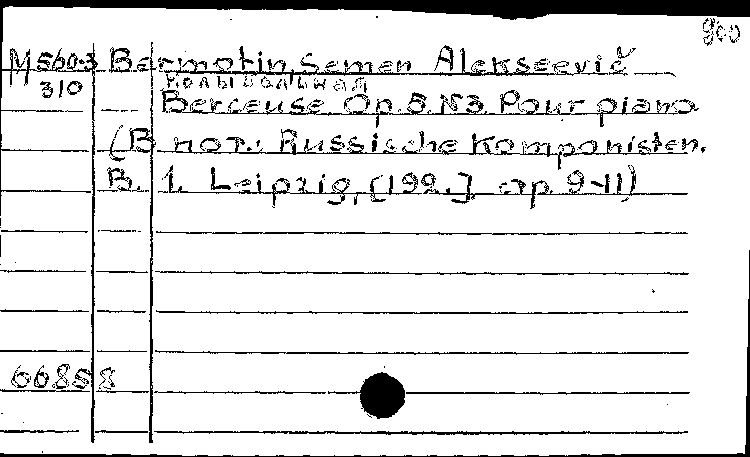 доо
M 560-3 Barmotin, Semen Alekseevič
310 Колыбальная
Berceuse Op. 5. N 3. Pour piano
(В нот.: Russische Komponisten.
B. 1. Leipzig, [192.]. стр. 9-11)
66858